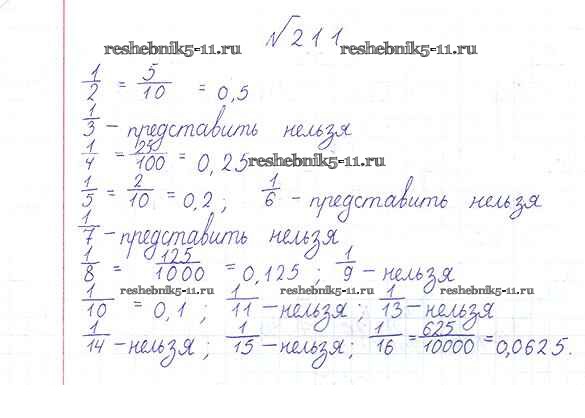 №211
reshebnik5-11.ru reshebnik5-11.ru
1/2 = 5/10 = 0,5
1/3 – представить нельзя
1/4 = 25/100 = 0,25 reshebnik5-11.ru
1/5 = 2/10 = 0,2; 1/6 – представить нельзя
1/7 – представить нельзя
1/8 = 125/1000 = 0,125; 1/9 – нельзя
reshebnik5-11.ru reshebnik5-11.ru reshebnik5-11.ru
1/10 = 0,1; 1/11 – нельзя; 1/13 – нельзя
1/14 – нельзя; 1/15 – нельзя; 1/16 = 625/10000 = 0,0625.